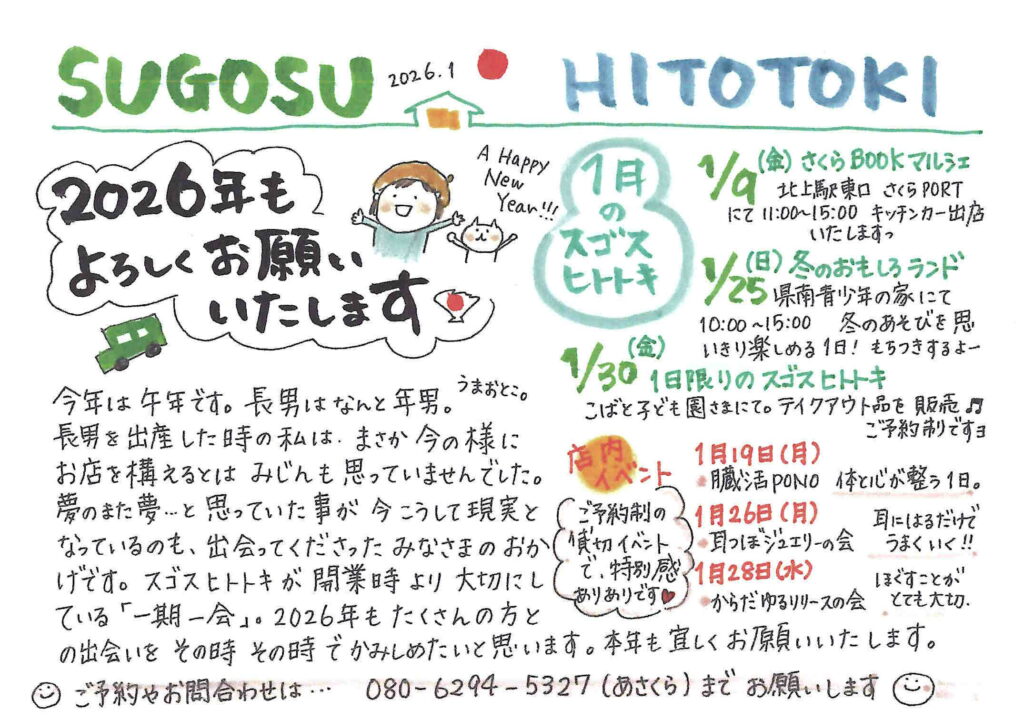 SUGOSU 2026.1 HITOTOKI
2026年も
よろしくお願い
いたします
A Happy
New
Year!!!
今年は午年です。長男はなんと年男。うまおとこ。
長男を出産した時の私は、まさか今の様に
お店を構えるとはみじんも思っていませんでした。
夢のまた夢…と思っていた事が今こうして現実と
なっているのも、出会ってくださったみなさまのおか
げです。スゴスヒトトキが開業時より大切にし
ている「一期一会」。2026年もたくさんの方と
の出会いをその時その時でかみしめたいと思います。本年も宜しくお願いいたします。
1月
の
スゴス
ヒトトキ
1/9(金)さくらBOOKマルシェ
北上駅東口 さくらPORT
にて11:00~15:00 キッチンカー出店
いたしますっ
1/25(日)冬のおもしろランド
県南青少年の家にて
10:00~15:00 冬のあそびを思
いきり楽しめる1日!もちつきするよー
1/30(金)
1日限りのスゴスヒトトキ
こばと子ども園さまにて。テイクアウト品を販売♬
ご予約制ですヨ
店内
イベント
ご予約制の
貸切イベント
で、特別感
ありありです♥
1月19日(月)
・臓活PONO 体と心が整う1日。
1月26日(月)
・耳つぼジュエリーの会
耳にはるだけで
うまくいく!!
1月28日(水)
・からだゆるリリースの会
ほぐすことが
とても大切.
ご予約やお問合わせは… 080-6294-5327(あさくら)までお願いします